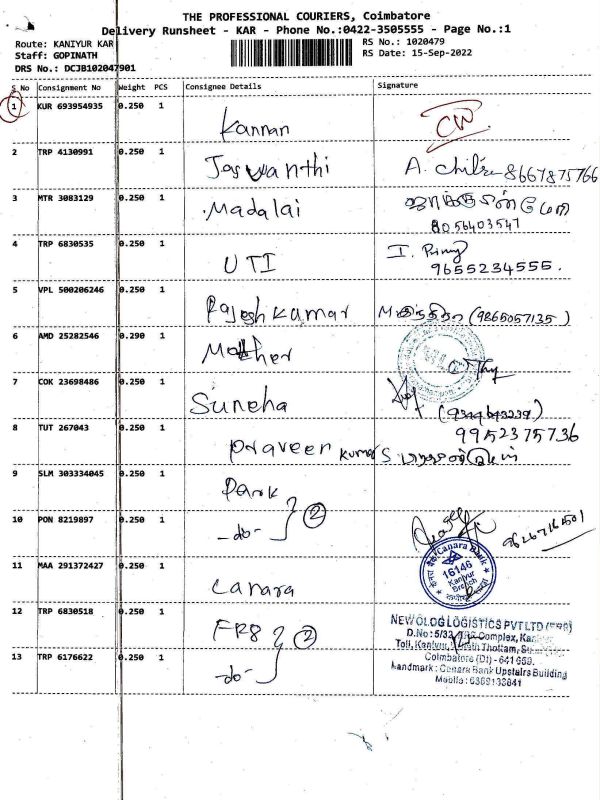 THE PROFESSIONAL COURIERS, Coimbatore
Delivery Runsheet - KAR - Phone No.:0422-3505555 - Page No.:1
Route: KANIYUR KAR
RS No.: 1020479
Staff: GOPINATH
RS Date: 15-Sep-2022
DRS No.: DCJB102047901
S No Consignment No Weight PCS Consignee Details Signature
1 KUR 693954935 0.250 1 Kannan
2 TRP 4130991 0.250 1 Jaswanthi A. Chitra 8667875766
3 MTR 3083129 0.250 1 Madalai
8056403547
4 TRP 6830535 0.250 1 UTI I.
9655234555.
5 VPL 500206246 0.250 1 Rajeshkumar (9865057135)
6 AMD 25282546 0.290 1 Mother
7 COK 23698486 0.250 1 Suneha
8 TUT 267043 0.250 1 Praveen Kumar S. 9952375736
9 SLM 303334045 0.250 1 Park
2
10 PON 8219897 0.250 1 -do- 9626716501
11 MAA 291372427 0.250 1 Canara
Canara Bank
16146
Kaniyur
Branch
12 TRP 6830518 0.250 1 FR8
2
13 TRP 6176622 0.250 1 -do-
NEWOLOG LOGISTICS PVT LTD (FR8)
D.No: 5/32, Complex,
Toll, Thottam,
Coimbatore (Dt) - 641 659.
Landmark : Canara Bank Upstairs Building
Mobile : 6369133841